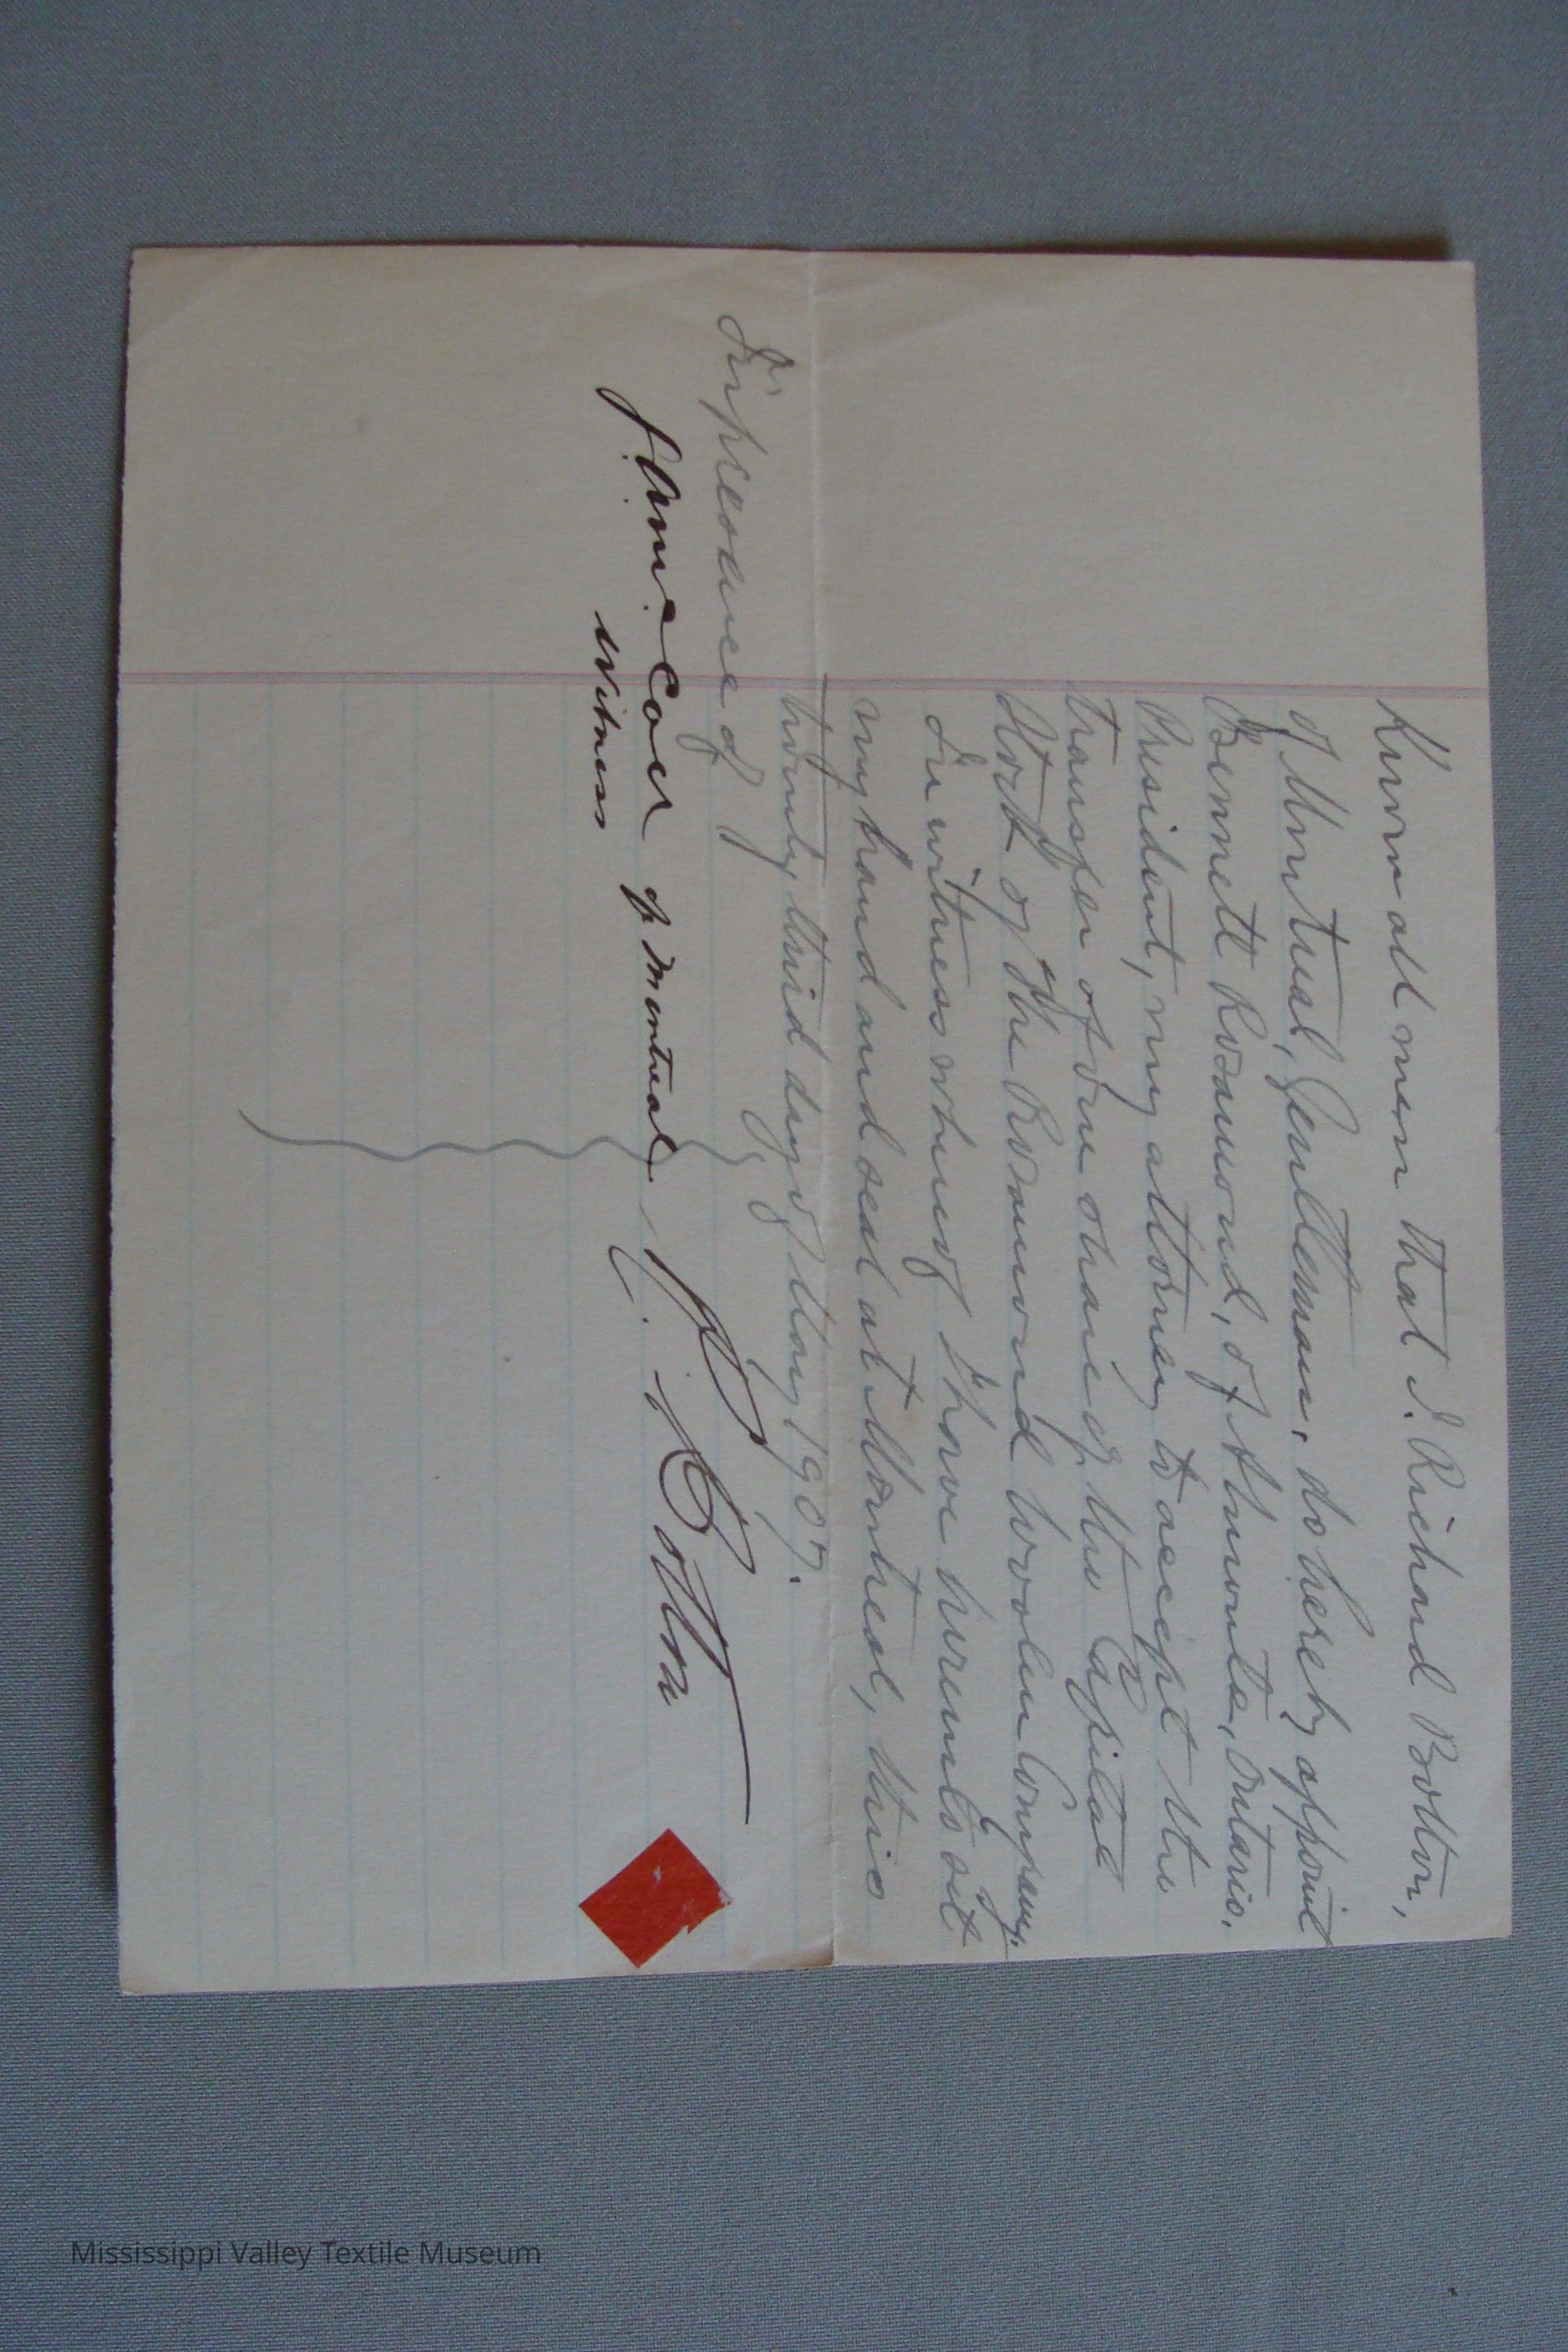 Know all men that I. Richard Bolton,
of Montreal, Gentleman, do hereby appoint
Bennett Rosamond, of Almonte, Ontario.
President, my attorney to accept the
transfer of one share of the Capital
Stock of the Rosamond Woolen Company.
In witness whereof I have hereunto set
my hand and seal at Montreal, this
twenty third day of May 1907.
In presence of
of Montreal
witness
R. Bolton
Mississippi Valley Textile Museum